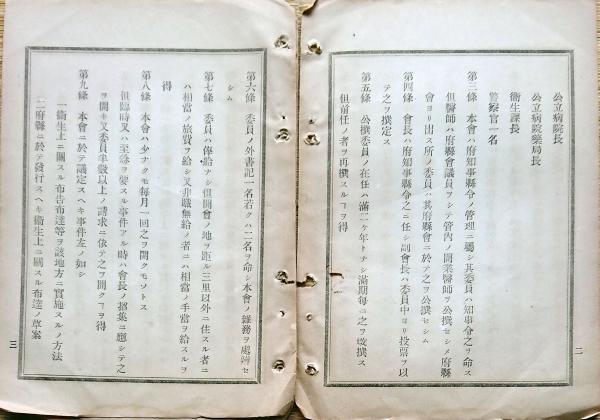 公立病院長
公立病院藥局長
衞生課長
警察官一名
第三條 本會ハ府知事縣令ノ管理ニ屬シ其委員ハ知事縣令之ヲ命ス
但醫師ハ府縣會議員ヲシテ管內ノ開業醫師ヲ公撰セシメ府縣
會ヨリ出ス所ノ委員ハ其府縣會ニ於テ之ヲ公撰セシム
第四條 會長ハ府知事縣令之ニ任シ副會長ハ委員中ヨリ投票ヲ以
テ之ヲ撰定ス
第五條 公撰委員ノ在任ハ滿二ケ年トナシ滿期每ニ之ヲ改撰ス
但前任ノ者ヲ再撰スルヿヲ得
二
第六條 委員ノ外書記一名若クハ二名ヲ命シ本會ノ庶務ヲ處辨セ
シム
第七條 委員ハ俸給ナシ但開會ノ地ヲ距ル三里以外ニ住スル者ニ
ハ相當ノ旅費ヲ給シ又非職無給ノ者ニハ相當ノ手當ヲ給スルヲ
得
第八條 本會ハ少ナクモ每月一回之ヲ開クモノトス
但臨時又ハ至急ヲ要スル事件アル時ハ會長ノ招集ニ應シテ之
ヲ開キ又委員半數以上ノ請求ニ依テ之ヲ開クヿヲ得
第九條 本會ニ於テ議定スヘキ事件左ノ如シ
一衞生上ニ關スル布告布達等ヲ該地方ニ實施スルノ方法
二府縣ニ於テ發行スヘキ衞生上ニ關スル布達ノ草案
三